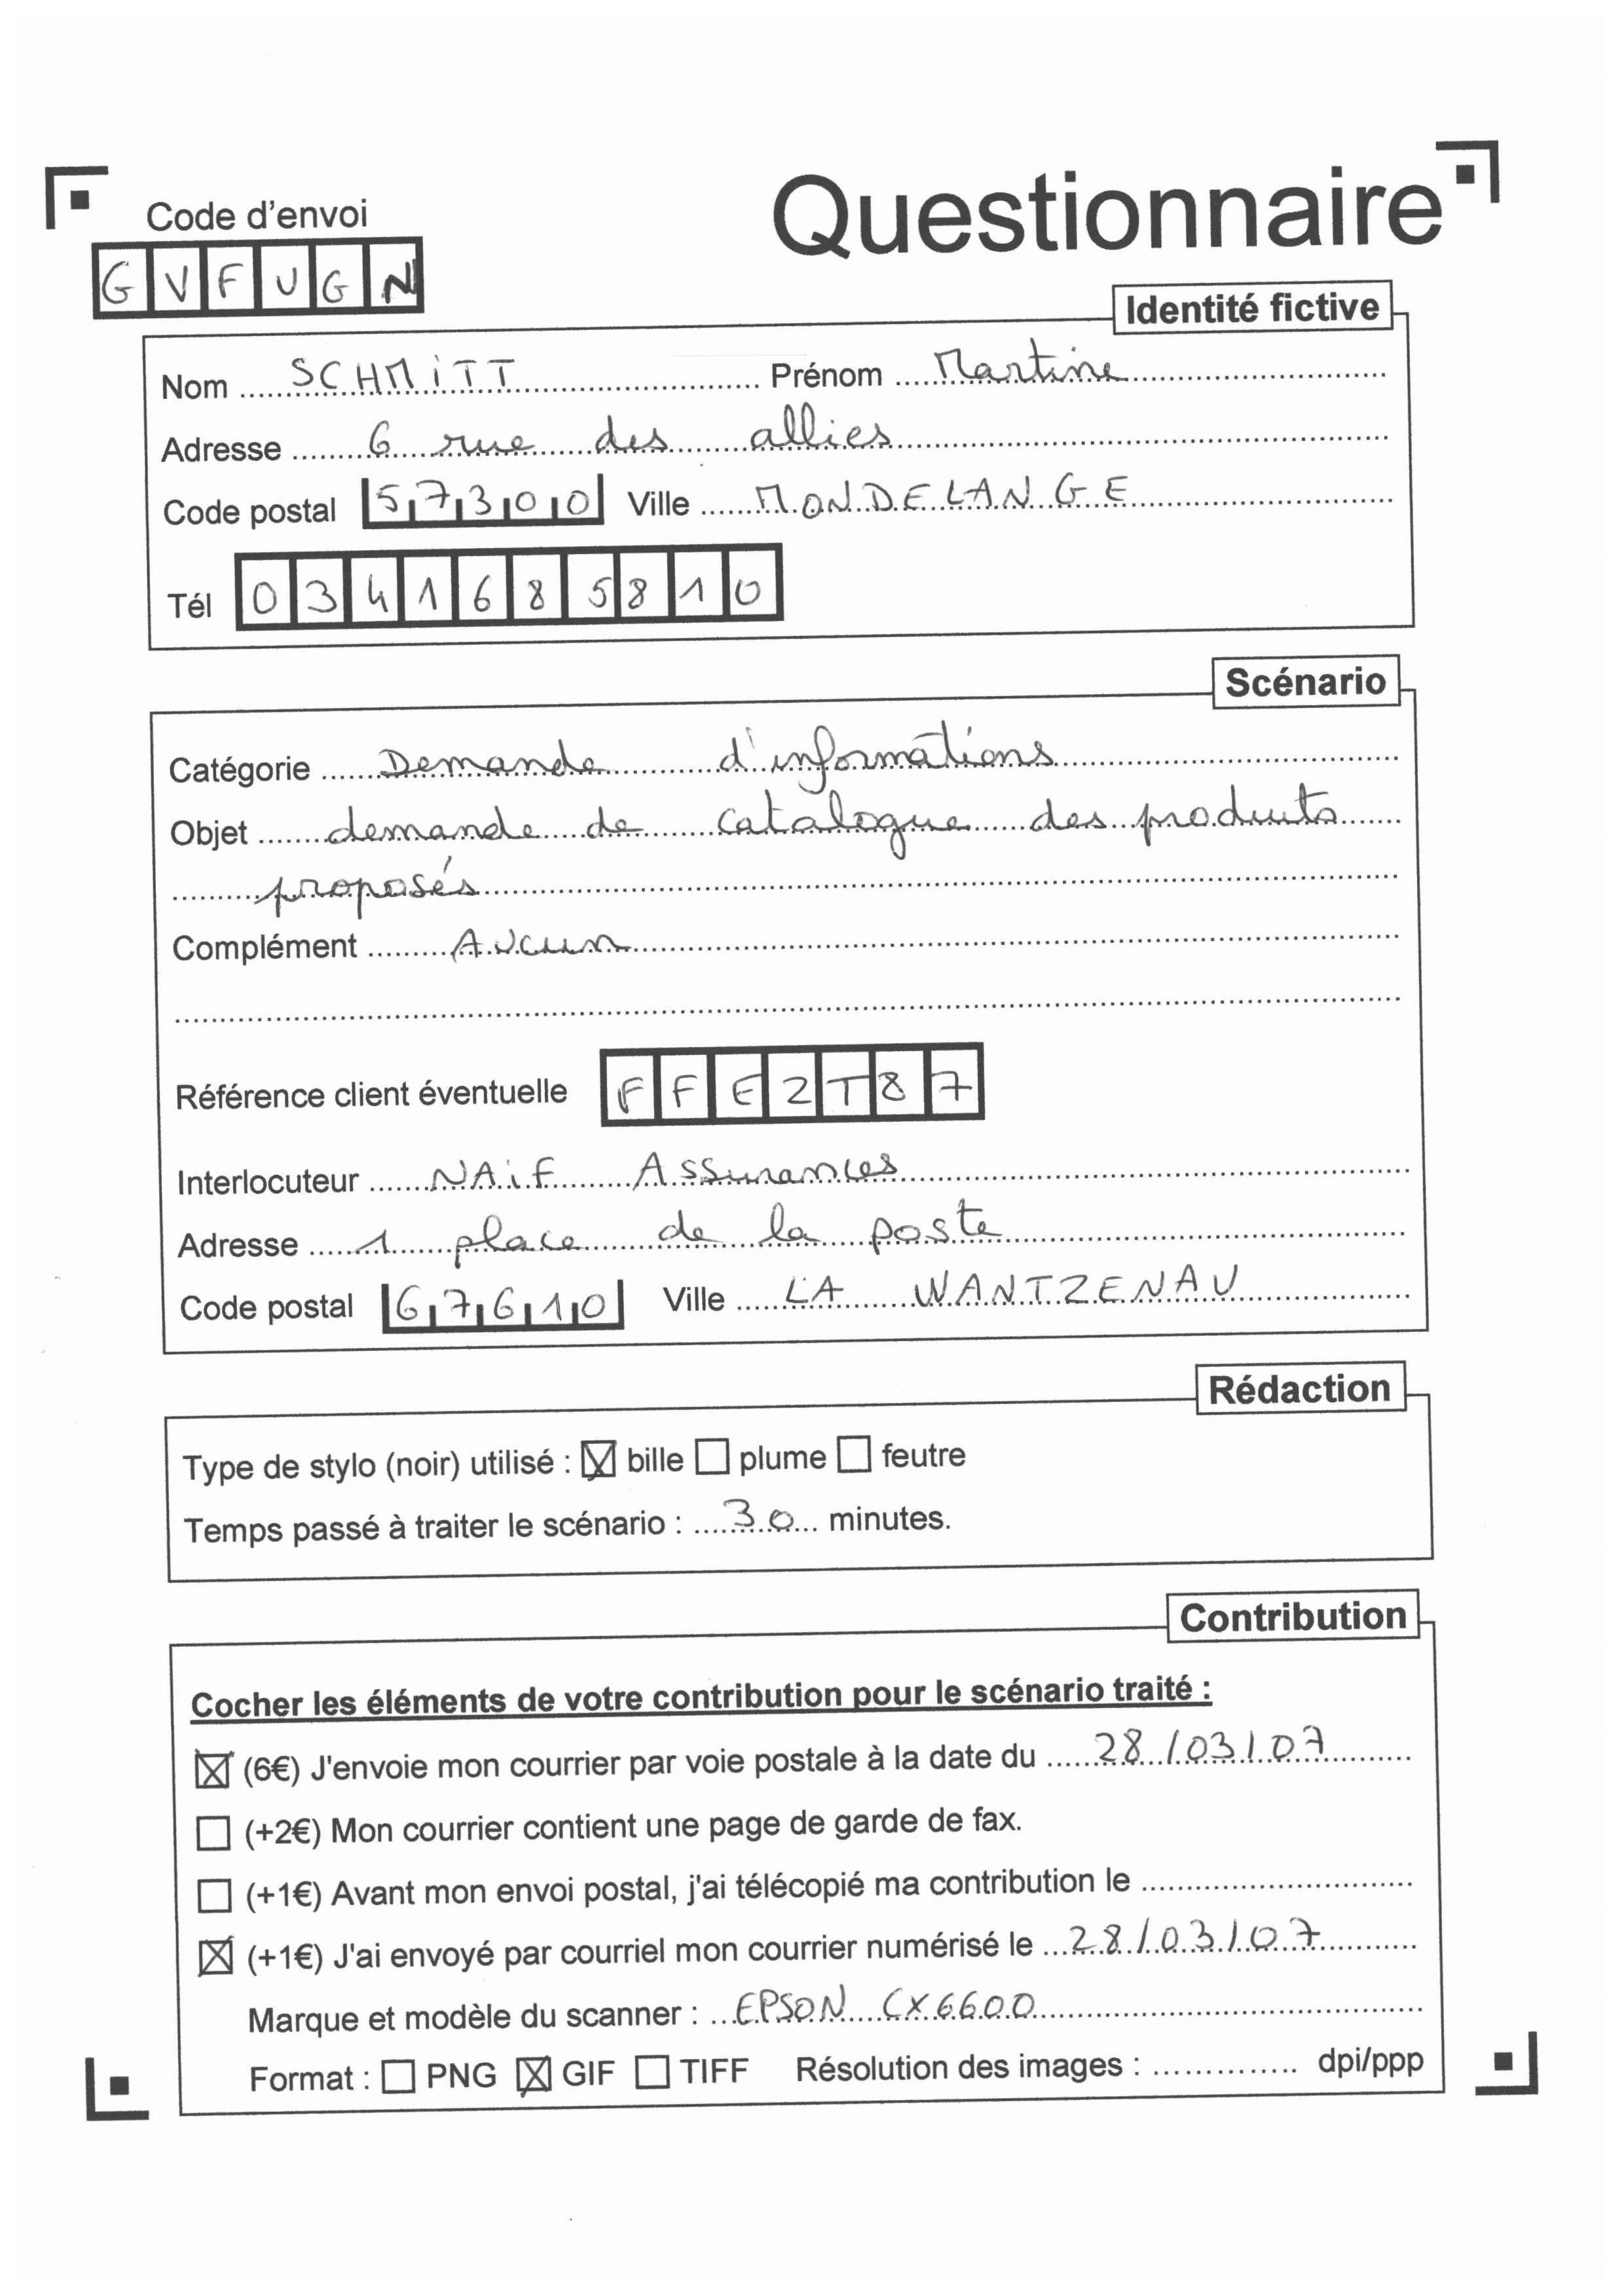 Questionnaire
Code d'envoi
GVFUGN
Identité fictive
Nom SCHMITT Prénom Martine
Adresse 6 rue des allies
Code postal 57300 Ville MONDELANGE
Tél 0341685810
Scénario
Catégorie Demande d'informations
Objet demande de catalogue des produits
proposés
Complément Aucun
Référence client éventuelle FFE2T87
Interlocuteur NAiF Assurances
Adresse 1 place de la poste
Code postal 67610 Ville LA WANTZENAU
Rédaction
Type de stylo (noir) utilisé : ☒ bille ☐ plume ☐ feutre
Temps passé à traiter le scénario : 30 minutes.
Contribution
Cocher les éléments de votre contribution pour le scénario traité :
☒ (6€) J'envoie mon courrier par voie postale à la date du 28/03/07
☐ (+2€) Mon courrier contient une page de garde de fax.
☐ (+1€) Avant mon envoi postal, j'ai télécopié ma contribution le
☒ (+1€) J'ai envoyé par courriel mon courrier numérisé le 28/03/07
Marque et modèle du scanner : EPSON CX6600
Format : ☐ PNG ☒ GIF ☐ TIFF Résolution des images : dpi/ppp